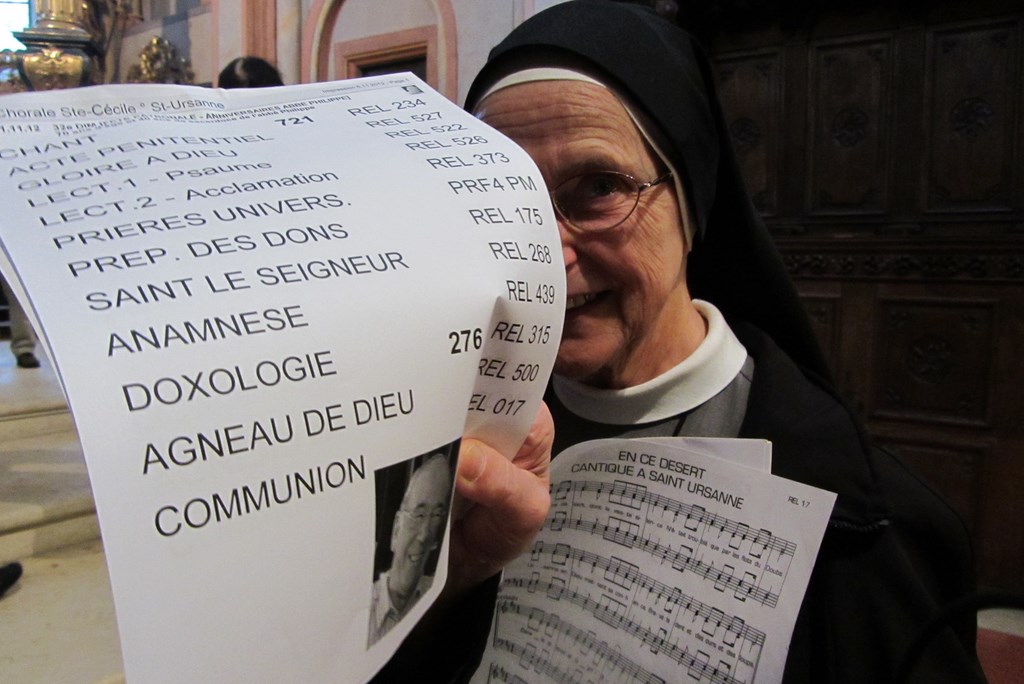 Chorale Ste-Cécile * St-Ursanne
1.11.12 32e DIM ANNIVERSAIRES ABBE PHILIPPE
CHANT 721 REL 234
ACTE PENITENTIEL REL 527
GLOIRE A DIEU REL 522
LECT.1 - Psaume REL 526
LECT.2 - Acclamation REL 373
PRIERES UNIVERS. PRF4 PM
PREP. DES DONS REL 175
SAINT LE SEIGNEUR REL 268
ANAMNESE REL 439
DOXOLOGIE 276 REL 315
AGNEAU DE DIEU REL 500
COMMUNION EL 017
EN CE DESERT
CANTIQUE A SAINT URSANNE
REL 17
que par les flots du Doubs